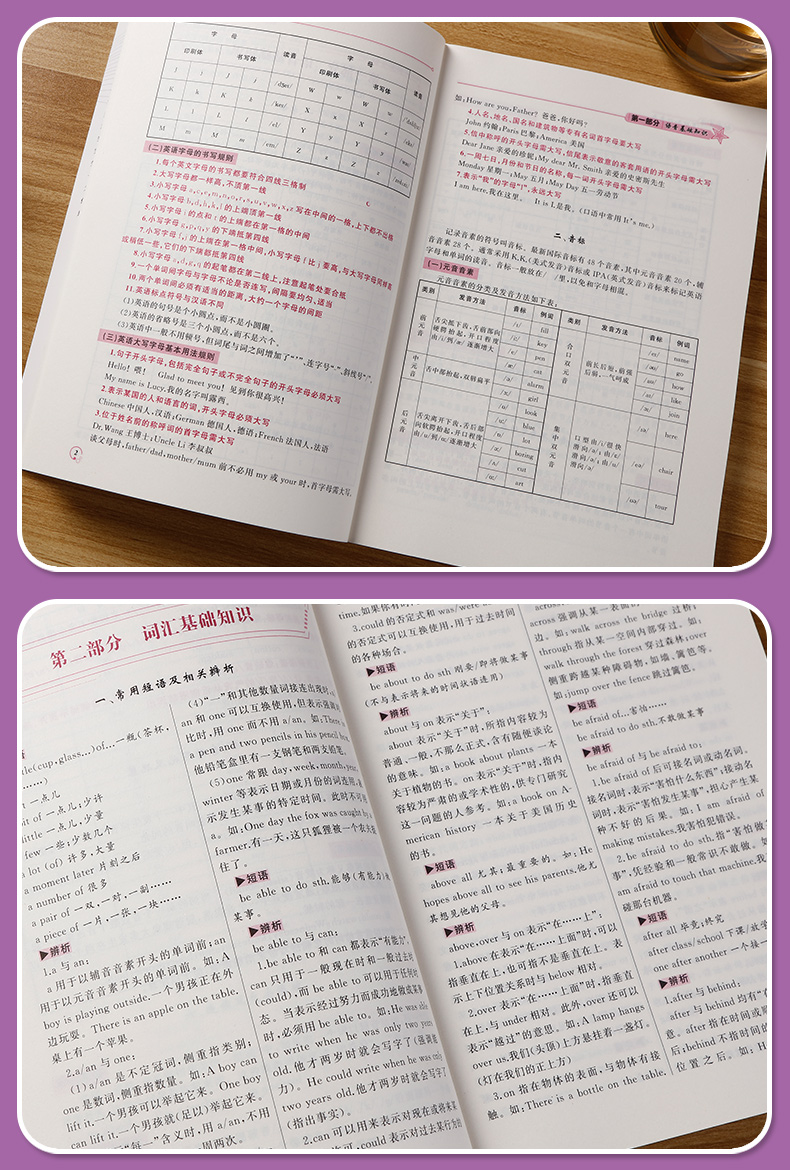 字 母
读音
字 母
读音
印刷体
书写体
印刷体
书写体
(二)英语字母的书写规则
1.每个英文字母的书写都要符合四线三格制
2.大写字母都一样高,不顶第一线
3.小写字母 a,c,e,m,n,o,r,s,u,v,w,x,z 写在中间的一格,上下都不出格
4.小写字母 b,d,h,k,l 的上端顶第一线
5.小写字母 i 的点和 t 的上端都在第一格的中间
6.小写字母 g,p,q,y 的下端抵第四线
7.小写字母 f,j 的上在第一格中间,小写字母 f 比 j 要高,与大写字母同样高
或稍低一些,它们的下端都抵第四线
8.小写字母 a,d,g,q 的起笔都在第二线上,注意起笔处要合拢
9.一个单词间字母与字母不论是否连写,间隔要均匀,适当
10.两个单词间必须有适当的距离,大约一个字母的间距
11.英语标点符号与汉语不同
(1)英语的句号是个小圆点,而不是小圆圈。
(2)英语的省略号是三个小圆点,而不是六个。
(3)英语中一般不用顿号,但词尾与词之间增加了“'”、连字号“-”、斜线号“/”。
(三)英语大写字母基本用法规则
1.句子开头字母,包括完全句子或不完全句子的开头字母必须大写
Hello! 喂! Glad to meet you! 见到你很高兴!
My name is Lucy.我的名字叫露西。
2.表示某国的人和语言的词,开头字母必须大写
Chinese 中国人,汉语;German 德国人,德语;French 法国人,法语
3.位于姓名前的称呼词的首字母需大写
Dr. Wang 王博士;Uncle Li 李叔叔
谈父母时,father/dad,mother/mum 前不必用 my 或 your 时,首字母需大写.
2
第一部分 语音基础知识
如:How are you,Father? 爸爸,你好吗?
4.人名,地名,国名和建筑物等专有名词首字母要大写
John 约翰;Paris 巴黎;America 美国
5.信中称呼的开头字母需大写,信尾表示敬意的客套用语的开头字母需大写
Dear Jane 亲爱的珍妮;My dear Mr. Smith 亲爱的史密斯先生
6.一周七日,月份和节日的名称,每一词开头字母需大写
Monday 星期一;May 五月;May Day 五一劳动节
7.表示“我”的字母“I”,永远大写
I am here.我在这里。 It is I.是我。(口语中常用 It's me.)
二、音标
记录音素的符号叫音标。最新国际音标有 48 个音素,其中元音音素 20 个,辅
音音素 28 个。通常采用 K.K.(美式发音)音标或 IPA(英式发音)音标来标记英语
字母和单词的读音。音标一般放在/ /里,以免和字母相混。
(一)元音音素
元音音素的分类及发音方法如下表:
类别 发音方法 音标 例词 类别 发音方法 音标 例词
前元音
舌尖抵下齿,舌前部向
硬腭抬起,开口程度
fill
key
pen
cat
中元音
舌中部抬起,双唇扁平
alarm
girl
后元音
舌尖离开下齿,舌后部
向软腭抬起,开口程度
look
blue
lot
boring
cut
art
合口双元音
前长后短,前强
后弱,一气呵成
name
go
how
like
join
集中双元音
here
chair
tour
第二部分 词汇基础知识
一、常用短语及相关辨析
(cup,glass…)of…一瓶(茶杯,
……)
一点儿
of 一点儿;少许
little 一点儿,少量
few 一些;少数几个
a lot (of) 许多,大量
a moment later 片刻之后
a number of 很多
a pair of 一双,一对,一副……
a piece of 一片,一张,一块……
▶辨析
1.a 与 an:
a 用于以辅音音素开头的单词前;an
用于以元音音素开头的单词前。如:A
boy is playing outside.一个男孩正在外
边玩耍。There is an apple on the table.
桌上有一个苹果。
2.a/an 与 one:
(1)a/an 是不定冠词,侧重指类别;
one 是数词,侧重指数量。如:A boy can
lift it.一个男孩可以举起它来。One boy
can lift it.一个男孩就(足以)举起它来。
“每一”含义时,用 a/an,不用
周两次。
(4)“一”和其他数量词接连出现时,
an 和 one 可以互换使用,但表示强调对
比时,用 one 而不用 a/an. 如:There is
a pen and two pencils in his pencil box.
他铅笔盒里有一支钢笔和两支铅笔。
(5)one 常跟 day,week,month,year,
winter 等表示日期或月份的词连用,表
示发生某事的特定时间。此时不可用
a。如:One day the fox was caught by
farmer.有一天,这只狐狸被一个农夫抓
住了。
▶短语
be able to do sth.能够(有能力)做
某事。
▶辨析
be able to 与 can:
1.be able to 和 can 都表示“有能力”,
can 只用于一般现在时和一般过去时
(could),而 be able to 可以用于任何时
态。当表示经过努力而成功地做成某事
时,必须用 be able to。如:He was able
to write when he was only two years
old.他才两岁时就会写字了(强调能
力)。He could write when he was only
two years old.他才两岁时就会写字了
(指出事实)。
2.can 可以用来表示对现在或将来某
许可,could 表示对过去某行为的
time.如果你有时
3.could 的否定式和 was/were
的否定式可以互换使用,用于过去时间
的各种场合。
▶短语
be about to do sth 刚要/即将做某事
(不与表示将来的时间状语连用)
▶辨析
about 与 on 表示“关于”:
about 表示“关于”时,所指内容较为
普通、一般,不那么正式,含有随便谈论
的意味。如:a book about plants 一本
关于植物的书。on 表示“关于”时,指内
容较为严肃的或学术性的,供专门研究
这一问题的人参考。如:a book on A-
merican history 一本关于美国历史
的书。
▶短语
above all 尤其;最重要的。如:He
hopes above all to see his parents.他尤
其想见他的父母。
▶辨析
above,over 与 on 表示“在……上”:
1.above 在表示“在……上面”时,可以
指垂直在上,也可指不是垂直在上。表
示上下位置关系时与 below 相对。
2.over 表示“在……上面”时,指垂直
在上,与 under 相对。此外,over 还可以
表示“越过”的意思。如:A lamp hangs
over us.我们(头顶)上方悬挂着一盏灯。
(灯在我们的正上方)
3.on 指在物体的表面,与物体有接
触。如:There is a bottle on the table.
across
across 强调从某一表面的
边。如:walk across the bridge 过桥;
through 指从某一空间内部穿过。如:
walk through the forest 穿过森林;over
侧重跨越某种障碍物,如墙、篱笆等。
如:jump over the fence 跳过篱笆。
▶短语
be afraid of…害怕……
be afraid to do sth.不敢做某事
▶辨析
be afraid of 与 be afraid to:
1.be afraid of 后可接名词或动名词。
接名词时,表示“害怕什么东西”;接动名
词时,表示“害怕发生某事”,担心产生某
种不好的后果。如:I am afraid of
making mistakes.我害怕犯错误。
2.be afraid to do sth.指“害怕做
事”,凭经验和一般常识不敢做。如
am afraid to touch that machine.我
碰那台机器。
▶短语
after all 毕竟;终究
after class/school 下课/放学
one after another 一个接一
▶辨析
1.after 与 behind:
after 与 behind 均有“在
意。after 指在时间或顺
后;behind 不指时间的
位置之后。如:H